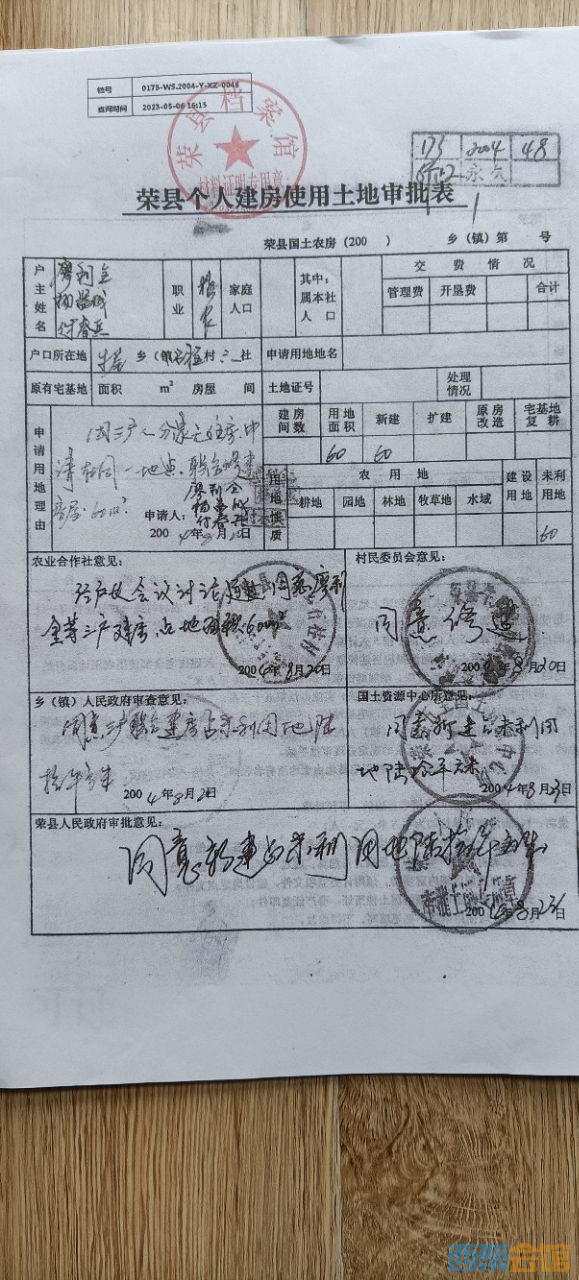 档号 0175-WS.2004-Y-XZ-0048
查阅时间 2023-05-06 16:15
荣县档案馆
材料证明专用章
173 2004 48
永久
荣县个人建房使用土地审批表
荣县国土农房(200 ) 乡(镇)第 号
户主姓名 廖利全 职业 务农 家庭人口 其中:属本社人口 交费情况
管理费 开垦费 合计
户口所在地 乡(镇) 村 社 申请用地地名
原有宅基地 面积 m² 房屋 间 土地证号 处理情况
申请用地理由 因三户人分家无住房.申
请在同一地点.联合修建
房屋.60m²
申请人: 廖利全
2004年8月20日
建房间数 用地面积 新建 扩建 原房改造 宅基地复耕
60 60
用地性质 农用地 建设用地 未利用地
耕地 园地 林地 牧草地 水域
60
农业合作社意见:
经户代会议讨论通过同意廖利
全等三户建房占地面积60m²
2004年8月20日
村民委员会意见:
同意修建
2004年8月20日
乡(镇)人民政府审查意见:
同意三户联合建房占未利用地陆
拾平方米 2004年8月2日
国土资源中心所意见:
同意新建占未利用
地陆拾平方米
2004年8月23日
荣县人民政府审批意见:
同意新建占未利用地陆拾平方米
2004年8月23日